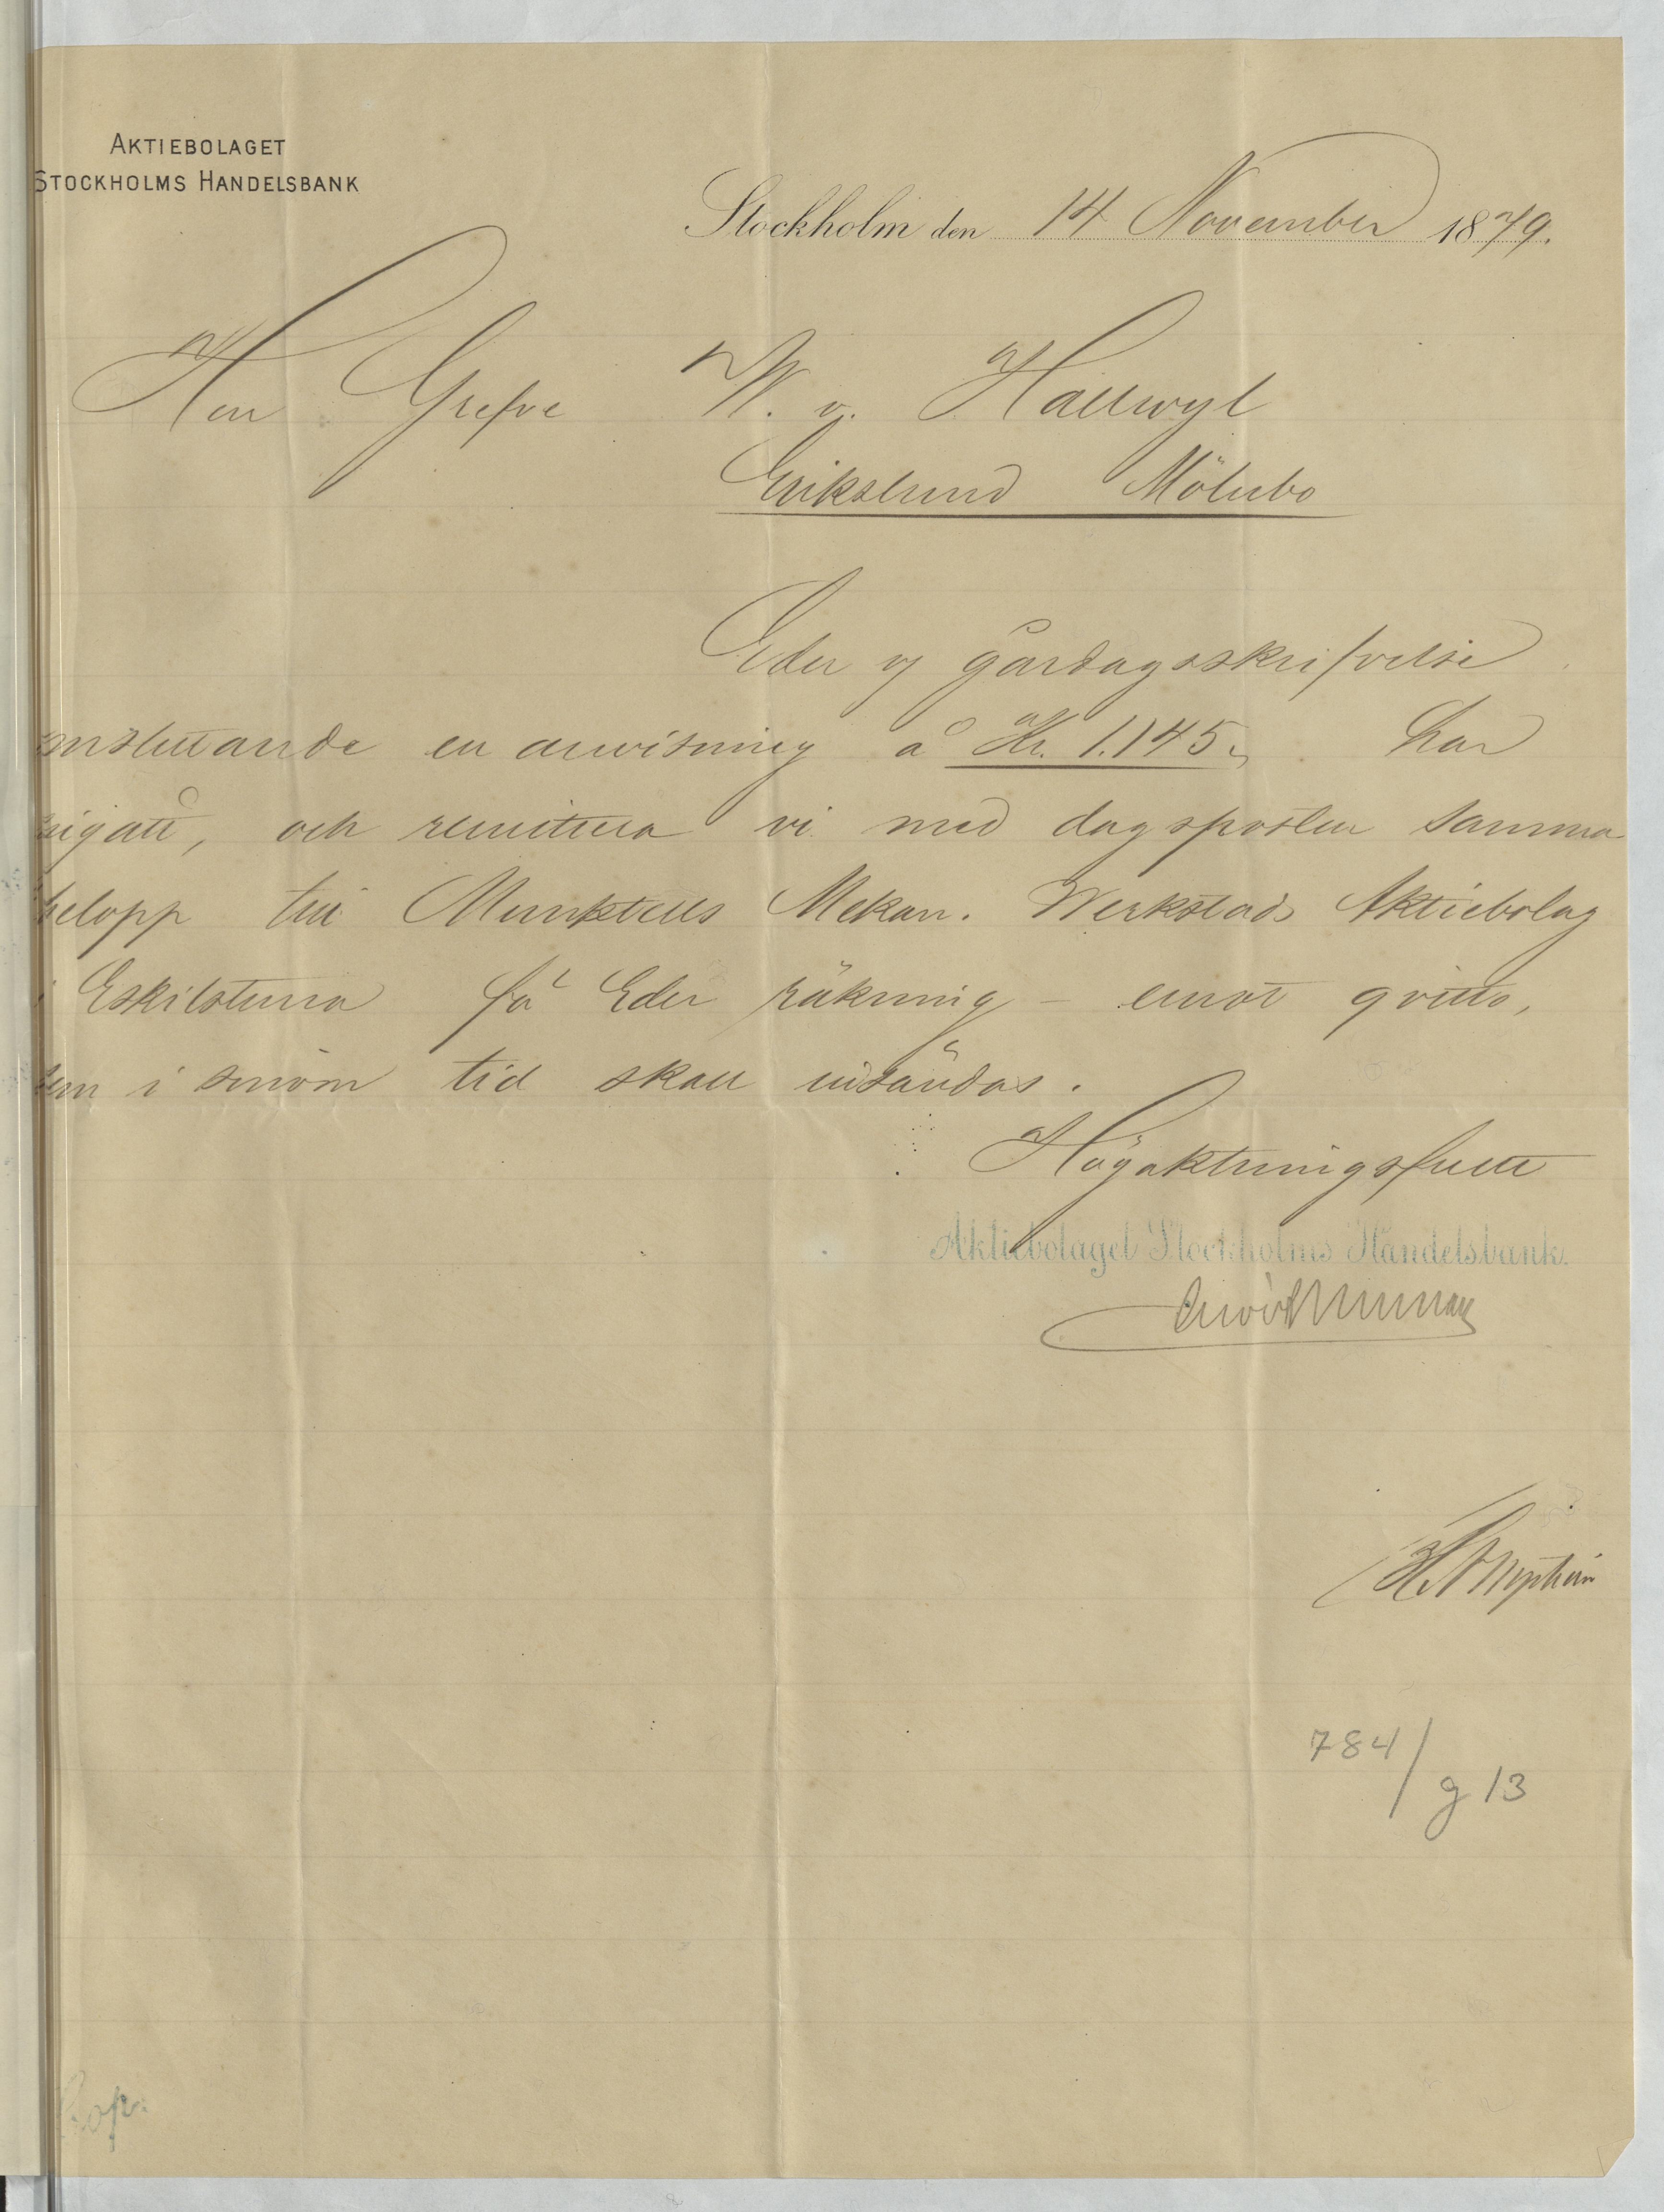 AKTIEBOLAGET
STOCKHOLMS HANDELSBANK
Stockholm den 14 November 1879.
Herr Grefve W. v. Hallwyl
Erikslund Mölnbo
Eder ag gårdagsskrifvelse
omslutande en anvisning å Kr. 1.145,, har
ingått, och remittera vi med dagsposten samma
belopp till Munktells Mekan. Werkstads Aktiebolag
i Eskilstuna på Eder räkning - emot qvitto,
som i sinom tid skall insändas.
Högaktningsfullt
Aktiebolaget Stockholms Handelsbank.
784/g 13
Kop.